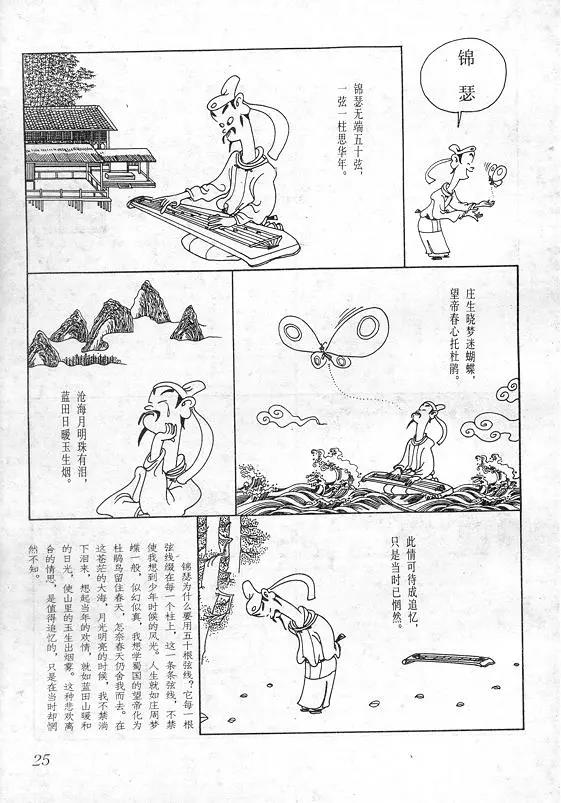 锦瑟
锦瑟无端五十弦，
一弦一柱思华年。
庄生晓梦迷蝴蝶，
望帝春心托杜鹃。
沧海月明珠有泪，
蓝田日暖玉生烟。
此情可待成追忆，
只是当时已惘然。
锦瑟为什么要用五十根弦线？它每一根
弦线缀在每一个柱上，这一条条弦线，不禁
使我想到少年时候的风光。人生就如庄周梦
蝶一般，似幻似真，我想学蜀国的望帝化为
杜鹃鸟留住春天，怎奈春天仍舍我而去。在
这苍茫的大海，月光明亮的时候，我不禁淌
下泪来，想起当年的欢情，就如蓝田山暖和
的日光，使山里的玉生出烟雾。这种悲欢离
合的情思，是值得追忆的，只是在当时却惘
然不知。
25